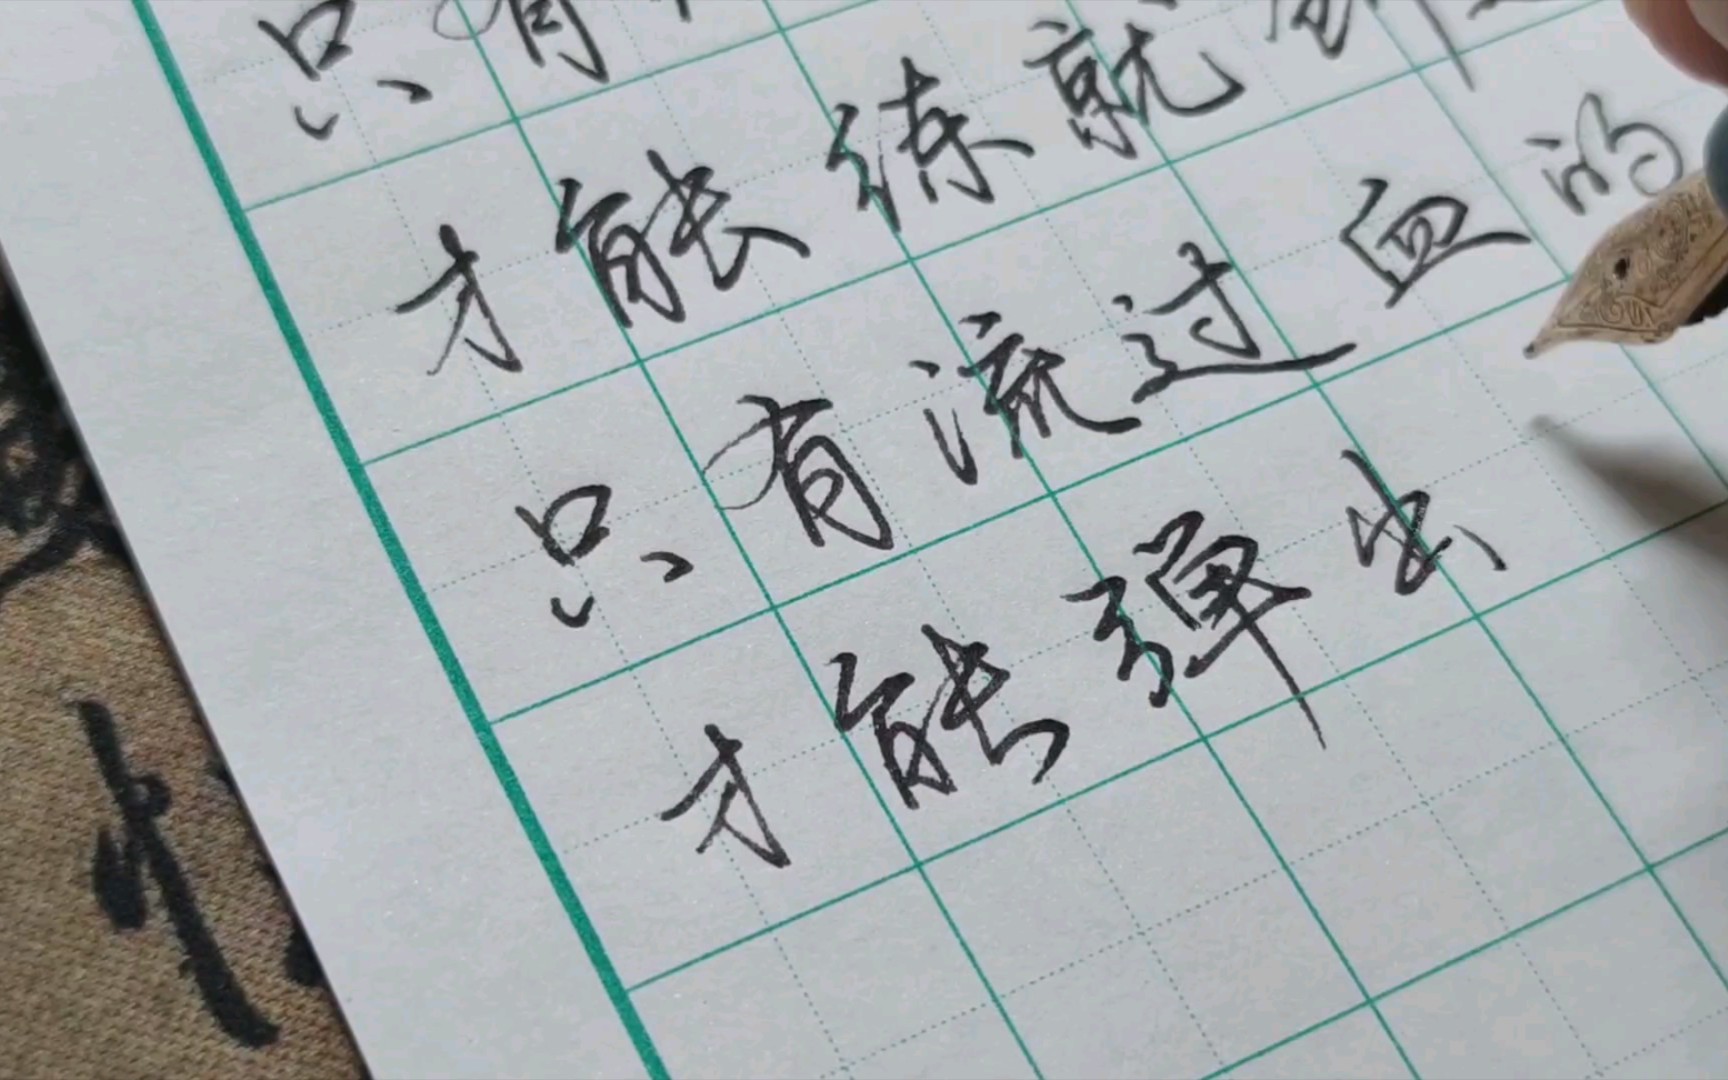 只有
才能练就创
只有流过血的
才能弹出